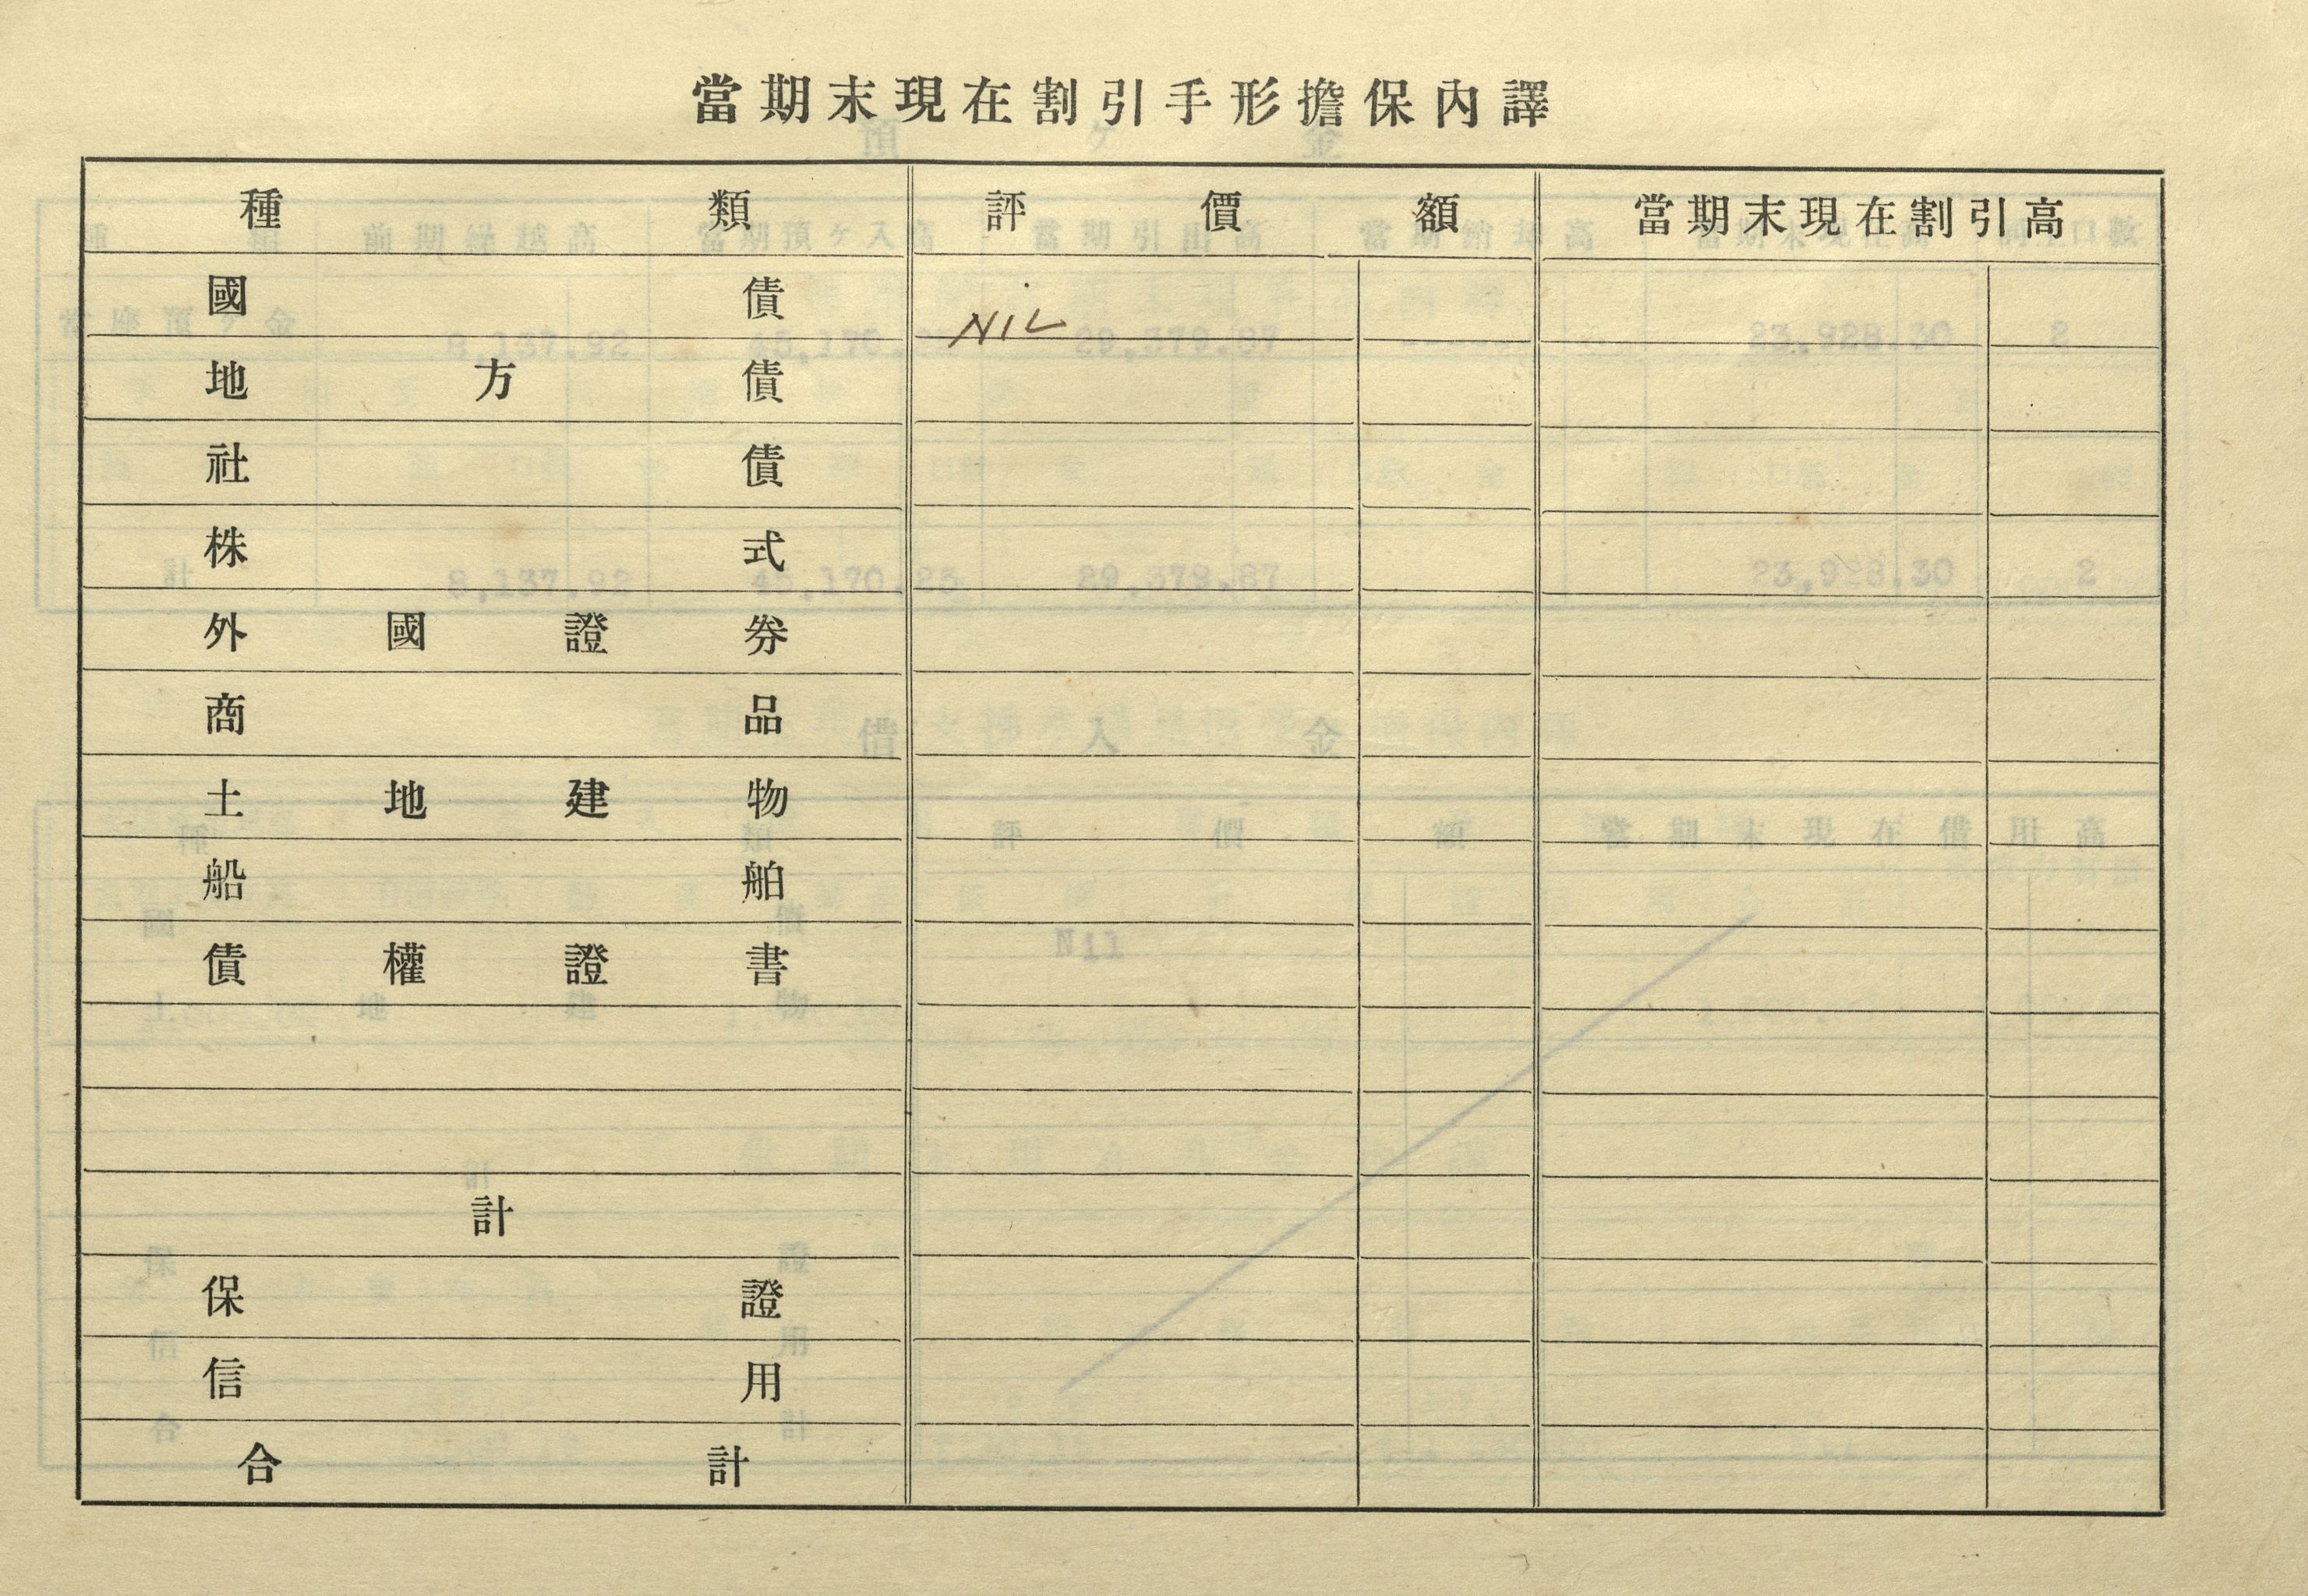 當期末現在割引手形擔保內譯
種類 評價額 當期末現在割引高
國債 NIL
地方債
社債
株式
外國證券
商品
土地建物
船舶
債權證書
計
保證
信用
合計